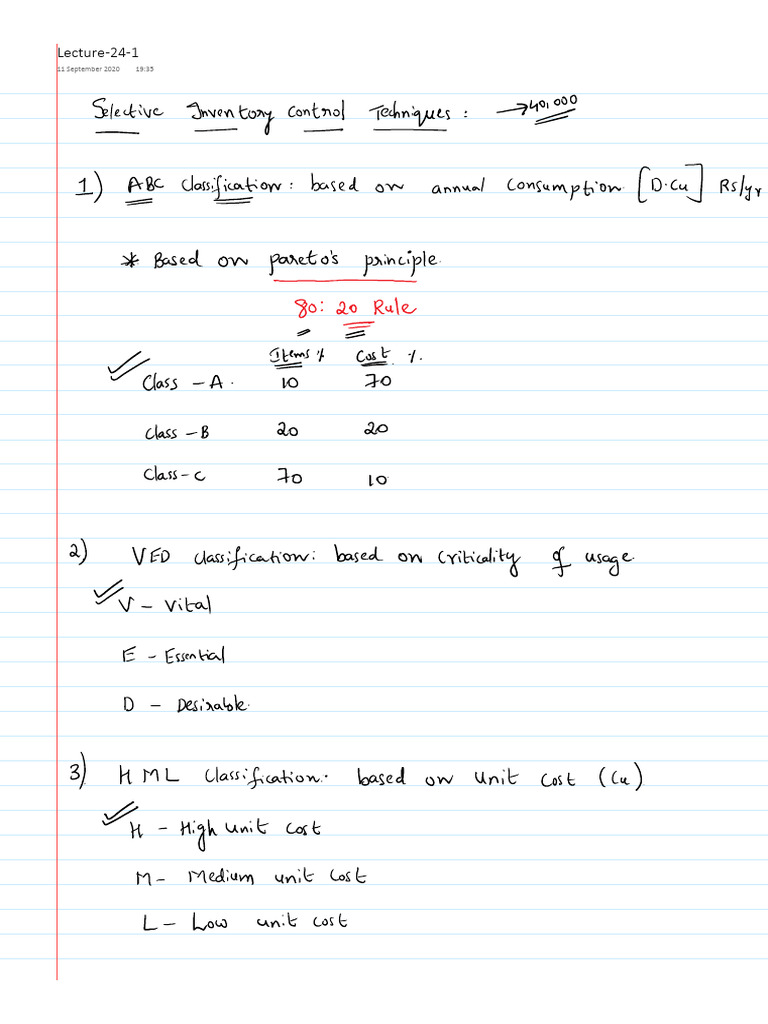 Lecture-24-1
11 September 2020 19:35
Selective Inventory Control Techniques : → 40,000
1) ABC Classification : based on annual Consumption [D.Cu] Rs/yr
* Based on pareto's principle.
80: 20 Rule
Items % Cost %.
Class - A. 10 70
Class - B 20 20
Class - C 70 10
2) VED Classification: based on Criticality of usage.
V - Vital
E - Essential
D - Desirable.
3) HML Classification. based on unit cost (Cu)
H - High unit cost
M - Medium unit cost
L - Low unit cost